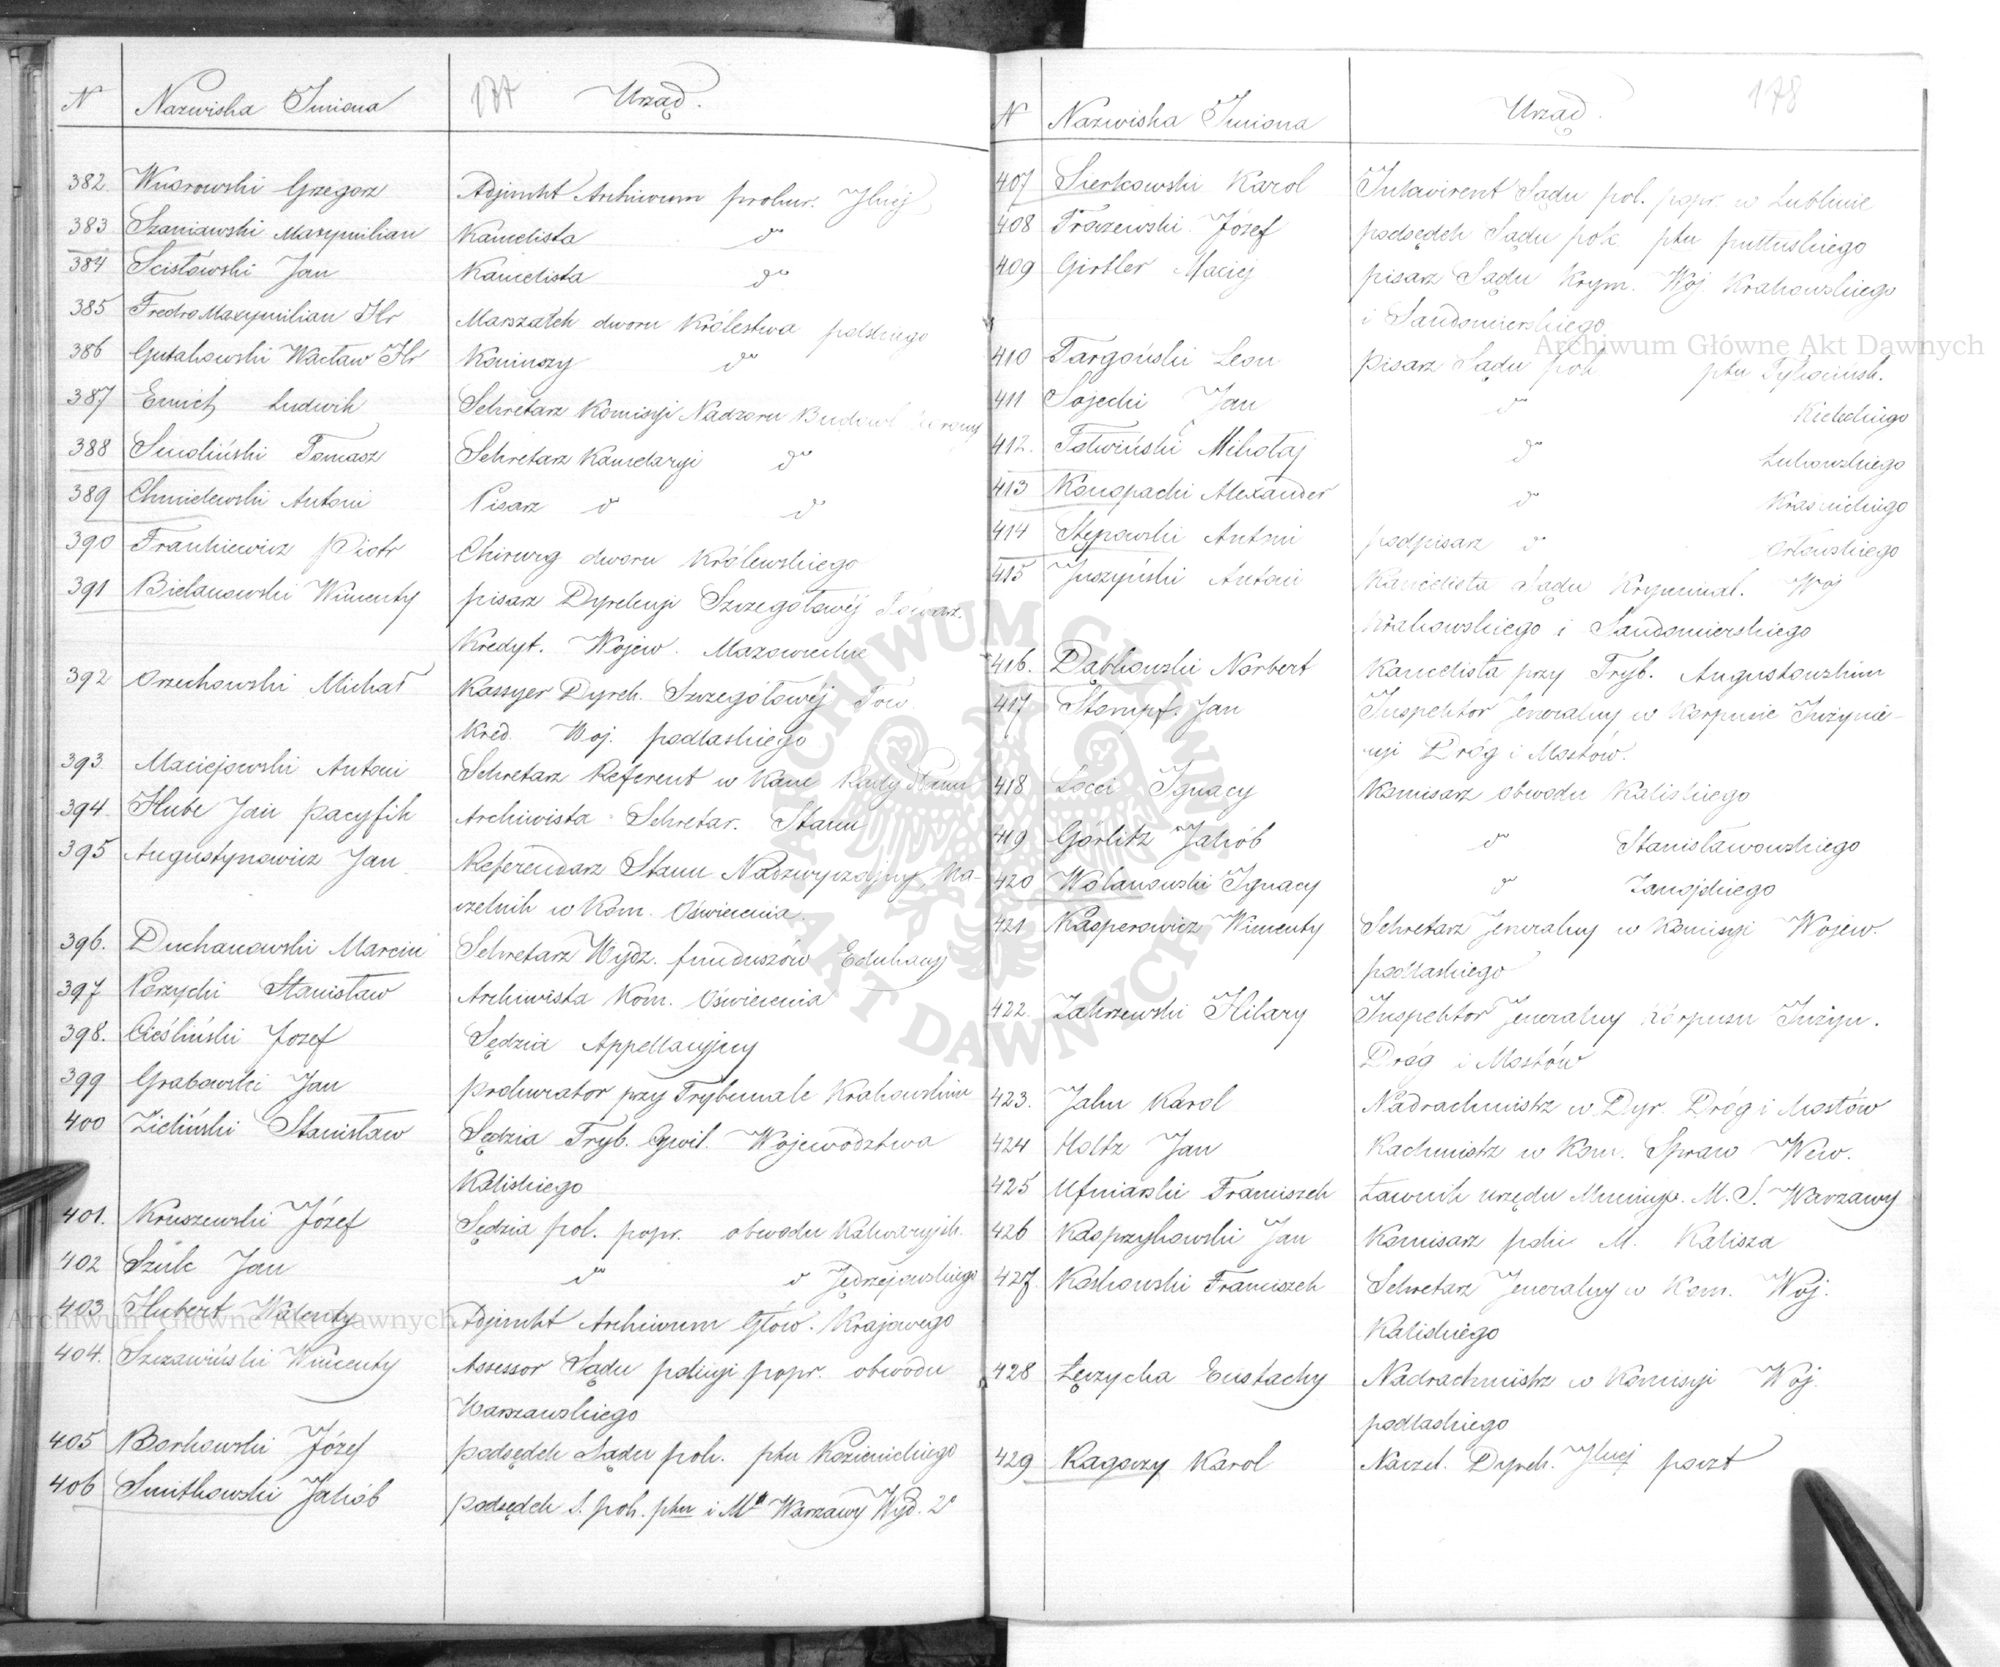 N Nazwiska Imiona 177 Urząd.
382. Wnorowski Grzegorz Adjunkt Archiwum prokur. Jlnéj
383 Szaniawski Maxymilian Kancelista do
384 Scisłowski Jan Kancelista do
385 Fredro Maxymilian Hr Marszałek dworu Królestwa polskiego
386 Gutakowski Wacław Hr Koniuszy do
387 Emich Ludwik Sekretarz Komisyi Nadzoru Budowl Korony
388 Smoliński Tomasz Sekretarz Kancelaryi do
389 Chmielewski Antoni Pisarz do do
390 Frankiewicz Piotr Chirurg dworu Królewskiego
391 Bielanowski Wincenty pisarz Dyrekcyi Szczegółowéj Towarz.
Kredyt. Wojew. Mazowieckie
392 Orzechowski Michał Kassyer Dyrek. Szczegółowéj Tow.
Kred. Woj. podlaskiego
393 Maciejowski Antoni Sekretarz Referent w Kanc Rady Stanu
394. Hube Jan Pacyfik Archiwista Sekretar. Stanu
395 Augustynowicz Jan Referendarz Stanu Nadzwyczajny, Na-
czelnik w Kom. Oświecenia.
396. Duchanowski Marcin Sekretarz Wydz. funduszów Edukacyj
397 Porzycki Stanisław Archiwista Kom. Oświecenia
398. Cieśliński Jozef Sędzia Appellacyjny
399 Grabowski Jan prokurator przy Trybunale Krakowskim
400 Zieliński Stanisław Sędzia Tryb. Cywil. Województwa
Kaliskiego
401. Kruszewski Józef Sędzia pol. popr. obwodu Kalwaryjsk.
402 Szulc Jan do do Jędrzejowskiego
403 Hubert Walenty Adjunkt Archiwum Głów. Krajowego
404. Szczawiński Wincenty Assessor Sądu policyi popr. obwodu
Warszawskiego
405 Borkowski Józef podsędek Sądu pok. ptu Kozienickiego
406 Smitkowski Jakób podsędek S. pok. ptu i Ma Warzawy Wyd. 2o
N Nazwiska Imiona Urząd. 178
407 Sierkowski Karol Inkwirent Sądu pol. popr. w Lublinie
408 Troszewski Józef podsędek Sądu pok ptu pułtuskiego
409 Girtler Maciej pisarz Sądu Krym. Woj. Krakowskiego
i Sandomierskiego
410 Targoński Leon Pisarz Sądu pok ptu Tykocińsk.
411 Sojecki Jan do Kieleckiego
412. Tołwiński Mikołaj do Łukowskiego
413 Konopacki Alexander do Kraśnickiego
414 Stępowski Antoni podpisarz do Orłowskiego
415 Juszyński Antoni Kancelista Sądu Kryminal. Woj
Krakowskiego i Sandomierskiego
416. Dąbkowski Norbert Kancelista przy Tryb. Augustowskim
417 Stompf. Jan Inspektor Jeneralny w Korpusie Inżynie-
ryi Dróg i Mostów.
418 Locci Ignacy Komisarz obwodu Kaliskiego
419 Görlitz Jakób do Stanisławowskiego
420 Wolanowski Ignacy do Zamojskiego
421 Kasperowicz Wincenty Sekretarz Jeneralny w Komisyi Wojew.
podlaskiego
422. Zakrzewski Hilary Inspektor Jeneralny Korpusu Inżyn.
Dróg i Mostów
423. Jahn Karol Nadrachmistrz w Dyr. Dróg i Mostów
424 Holtz Jan Rachmistrz w Kom. Spraw Wew.
425 Ufniarski Franciszek Ławnik urzędu Municyp. M. S. Warzawy
426 Kasprzykowski Jan Komisarz polic M. Kalisza
427. Koskowski Franciszek Sekretarz Jeneralny w Kom. Woj.
Kaliskiego
428 Łęczycka Eustachy Nadrachmistrz w Komisyi Woj.
podlaskiego
429 Ragoczy Karol Naczel. Dyrek. Jlnej poczt
Archiwum Główne Akt Dawnych
Archiwum Główne Akt Dawnych
ARCHIWUM GŁÓWNE AKT DAWNYCH